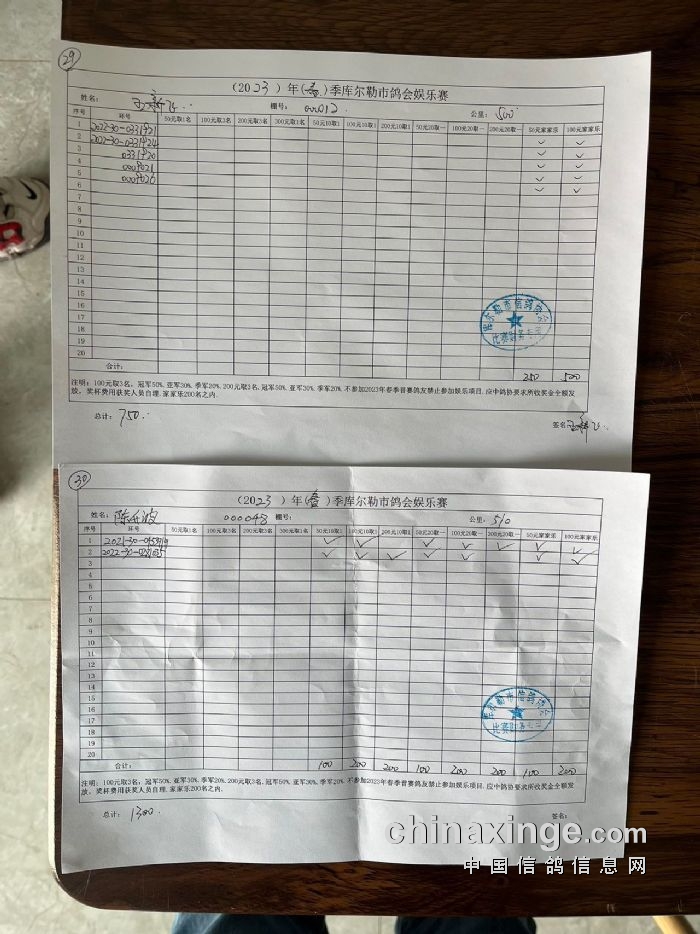 29
(2023)年(春)季库尔勒市鸽会娱乐赛
姓名: 棚号: 00012 公里: 500
序号 环号 50元取1名 100元取3名 200元取3名 300元取1名 50元10取1 100元10取1 200元10取1 50元20取一 100元20取一 200元20取一 50元家家乐 100元家家乐
1 2022-30-0331421
2 2022-30-0331424 ✓ ✓
3 ✓ ✓
4 ✓ ✓
5 ✓ ✓
6 ✓ ✓
7
8
9
10
11
12
13
14
15
16
17
18
19
20
合计: 250 500
库尔勒市信鸽协会
注明: 100元取3名, 冠军50%, 亚军30%, 季军20%, 200元取3名, 冠军50%, 亚军30%, 季军20%, 不参加2023年春季首赛鸽友禁止参加娱乐项目, 应中鸽协要求所收奖金全额发
放, 奖杯费用获奖人员自理, 家家乐200名之内.
总计: 750. 签名:
30
(2023)年(春)季库尔勒市鸽会娱乐赛
姓名: 000048 棚号: 公里: 510
序号 环号 50元取1名 100元取3名 200元取3名 300元取1名 50元10取1 100元10取1 200元10取1 50元20取一 100元20取一 200元20取一 50元家家乐 100元家家乐
1 ✓ ✓ ✓ ✓ ✓ ✓ ✓
2 ✓ ✓ ✓ ✓ ✓ ✓ ✓
3
4
5
6
7
8
9
10
11
12
13
14
15
16
17
18
19
20
合计: 100 200 200 100 200 200 100 200
库尔勒市信鸽协会
注明: 100元取3名, 冠军50%, 亚军30%, 季军20%, 200元取3名, 冠军50%, 亚军30%, 季军20%, 不参加2023年春季首赛鸽友禁止参加娱乐项目, 应中鸽协要求所收奖金全额发
放, 奖杯费用获奖人员自理, 家家乐200名之内.
总计: 1300. 签名:
chinaxinge.com
中国信鸽信息网